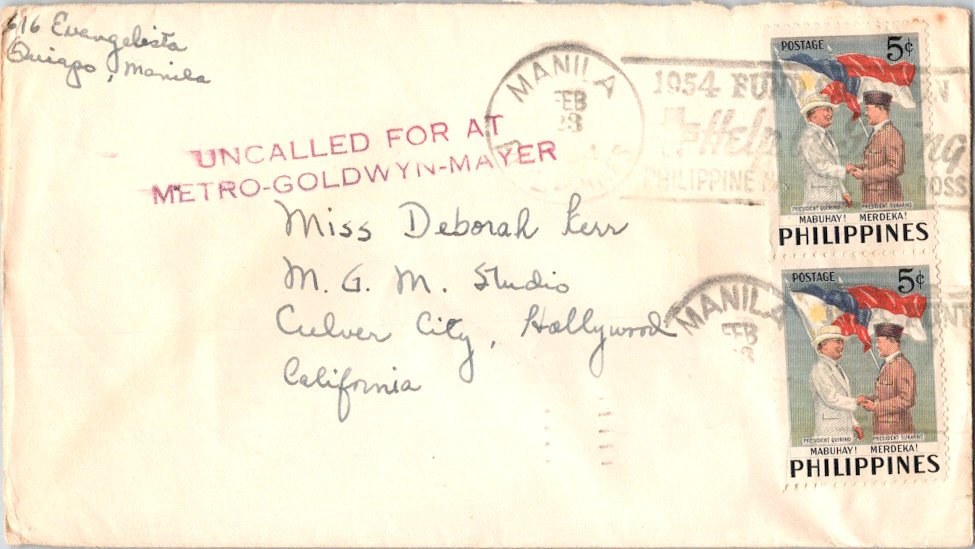 616 Evangelista
Quiapo, Manila
UNCALLED FOR AT
METRO-GOLDWYN-MAYER
Miss Deborah Kerr
M. G. M. Studio
Culver City, Hollywood
California
MANILA
FEB
1954 FUND
Help
PHILIPPINE
POSTAGE 5¢
PRESIDENT QUIRINO PRESIDENT SUKARNO
MABUHAY! MERDEKA!
PHILIPPINES
MANILA
FEB
POSTAGE 5¢
PRESIDENT QUIRINO PRESIDENT SUKARNO
MABUHAY! MERDEKA!
PHILIPPINES